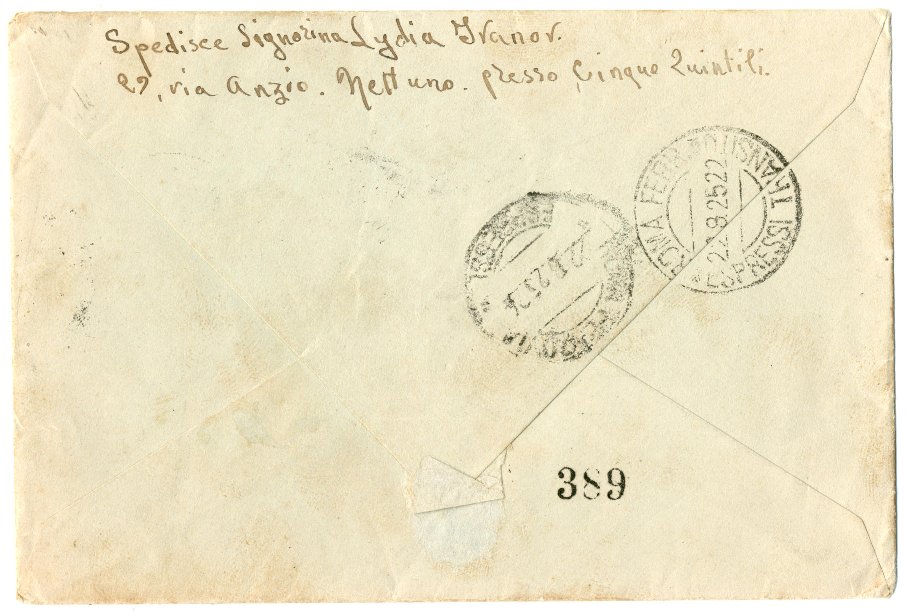 Spedisce Signorina Lydia Ivanov.
27, via Anzio. Nettuno. presso Cinque Quintili.
ROMA FERR. TRANSITI
ESPRESSI
22.8.25 22
389